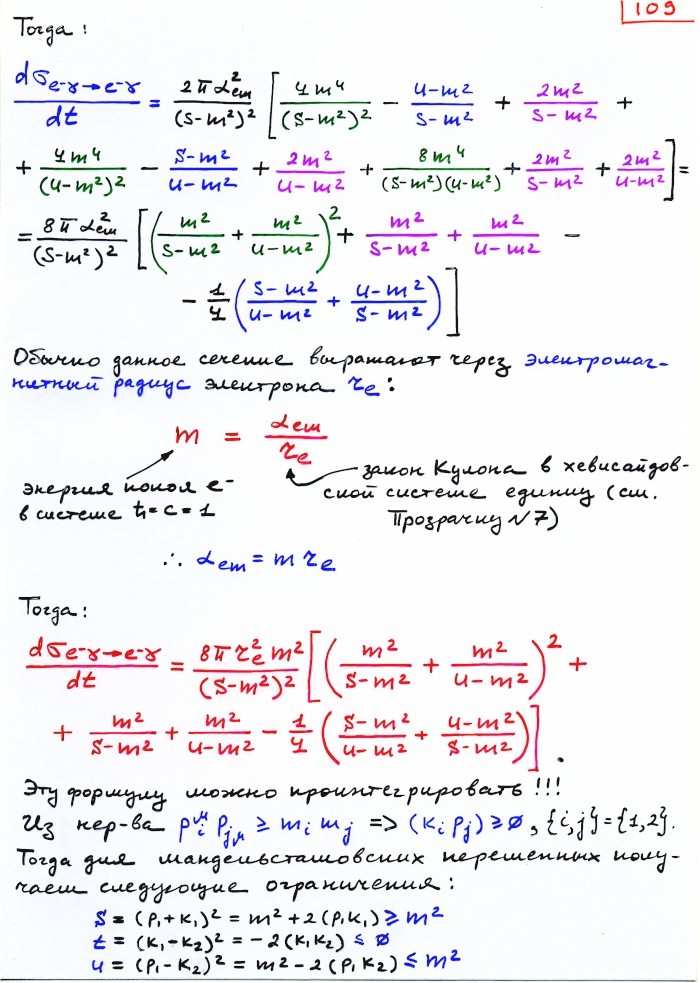 109
Тогда:
dσe-γ→e-γ/dt = 2παem²/(s-m²)² [4m⁴/(s-m²)² - (u-m²)/(s-m²) + 2m²/(s-m²) +
+ 4m⁴/(u-m²)² - (s-m²)/(u-m²) + 2m²/(u-m²) + 8m⁴/((s-m²)(u-m²)) + 2m²/(s-m²) + 2m²/(u-m²)] =
= 8παem²/(s-m²)² [(m²/(s-m²) + m²/(u-m²))² + m²/(s-m²) + m²/(u-m²) -
- 1/4 ((s-m²)/(u-m²) + (u-m²)/(s-m²))]
Обычно данное сечение выражают через электромаг-
нитный радиус электрона re:
m = αem/re
энергия покоя e-
в системе ħ=c=1
закон Кулона в хевисайдов-
ской системе единиц (см.
Прозрачку №7)
∴ αem = m re
Тогда:
dσe-γ→e-γ/dt = 8πre²m²/(s-m²)² [(m²/(s-m²) + m²/(u-m²))² +
+ m²/(s-m²) + m²/(u-m²) - 1/4 ((s-m²)/(u-m²) + (u-m²)/(s-m²))].
Эту формулу можно проинтегрировать!!!
Из нер-ва pᵢ^μ pⱼμ ≥ mᵢ mⱼ => (kᵢ pⱼ) ≥ 0, {i,j}={1,2}.
Тогда для мандельстамовских переменных полу-
чаем следующие ограничения:
s = (p₁+k₁)² = m² + 2(p₁k₁) ≥ m²
t = (k₁-k₂)² = -2(k₁k₂) ≤ 0
u = (p₁-k₂)² = m² - 2(p₁k₂) ≤ m²